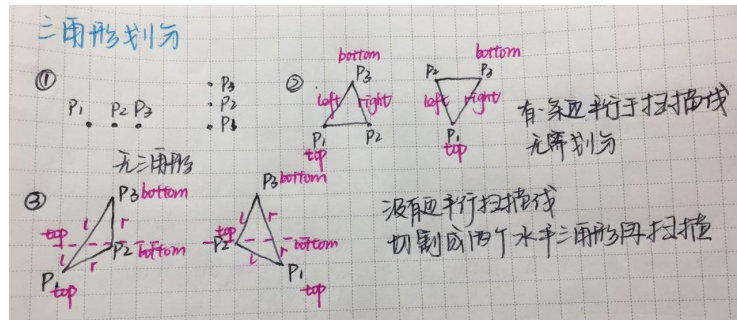 三角形划分
①
P1 P2 P3
P3
P2
P1
无三角形
②
bottom
P3
left right
P1 P2
top
bottom
P2 P3
left right
P1
top
有一条边平行于扫描线
无需划分
③
P3 bottom
l r
top
P2 bottom
l r
P1
top
P3 bottom
l r
top
P2 bottom
l r
P1
top
没有边平行扫描线
切割成两个水平三角形再扫描